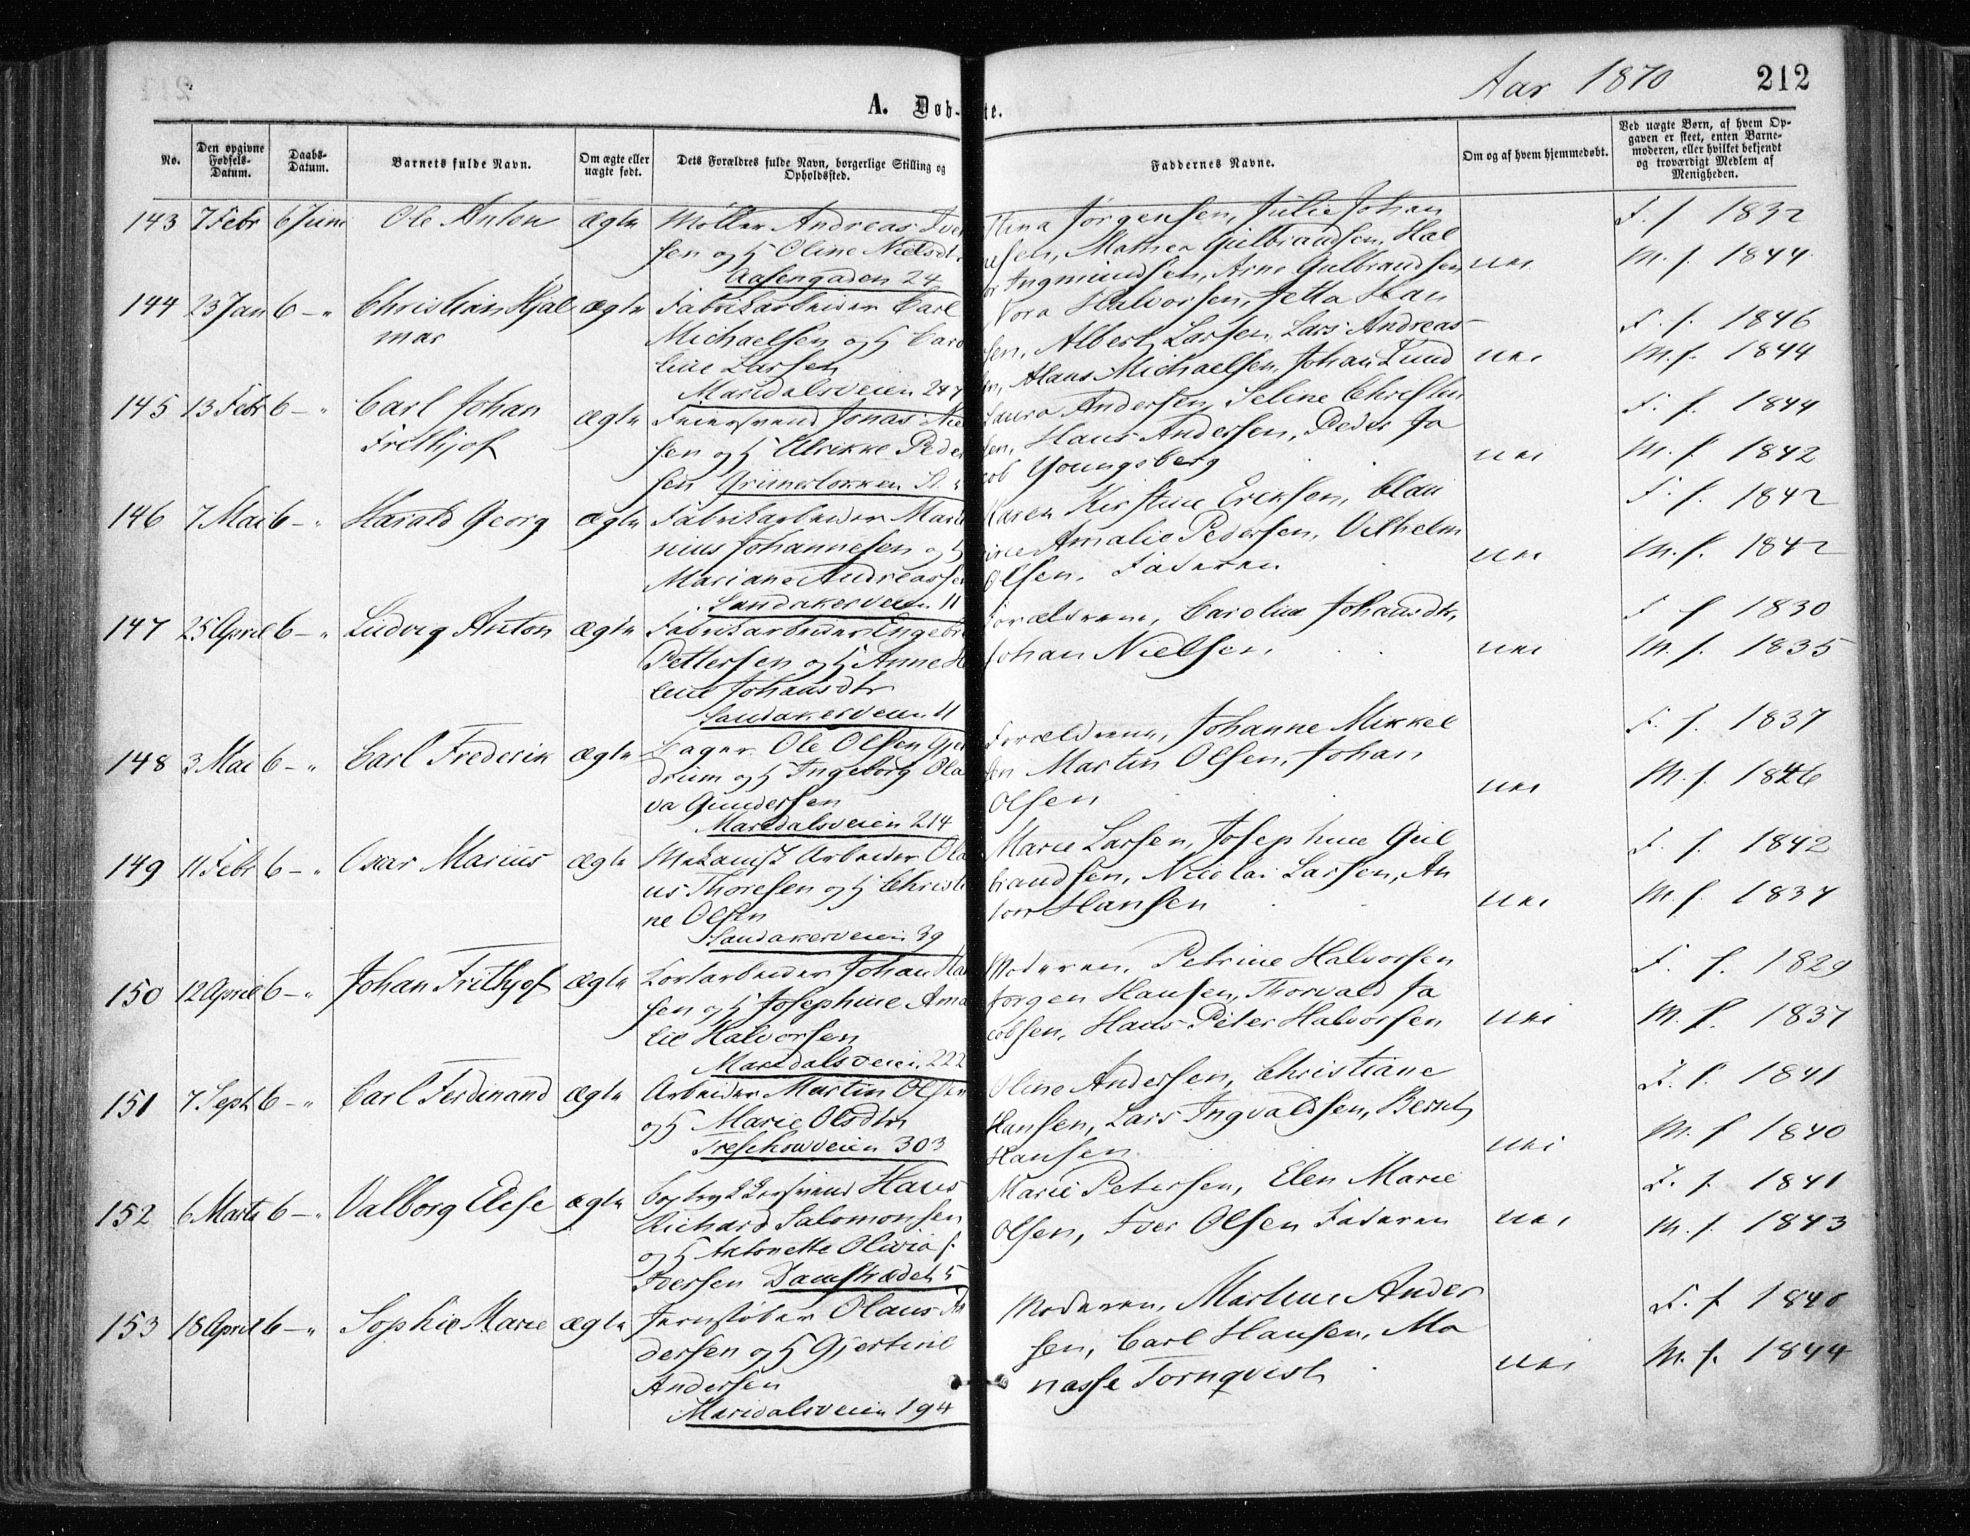 Aar 1870 212
A. Døb-
te.
No.
Den opgivne Fødsels-Datum.
Daabs-Datum.
Barnets fulde Navn.
Om ægte eller uægte født.
Dets Forældres fulde Navn, borgerlige Stilling og Opholdssted.
Faddernes Navne.
Om og af hvem hjemmedøbt.
Ved uægte Børn, af hvem Opgaven er skeet, enten Barnemoderen, eller hvilket bekjendt og troværdigt Medlem af Menigheden.
143 7 Febr 6 Juni Ole Anton ægte Møller Andreas Iver
sen og H Oline Nielsdt.
Aasengaden 24
Jørgensen, Julie Johan
Mathea Gulbrandsen, Hal
Ingmundsen, Arne Gulbrandsen
nei
F. f. 1832
M. f. 1844
144 23 Jan 6 - " Christian Hjal
mar
ægte Fabrikarbeider Carl
Michaelsen og H Caro
line Larsen
Maridalsveien 247
Nora Halvorsen, Jetta Han
sen, Albert Larsen, Lars Andreas
Klaus Michaelsen, Johan Lund
nei
F. f. 1846
M. f. 1844
145 13 Febr 6 - " Carl Johan
Frithjof
ægte Feiersvend Jonas Niel
sen og H Ulrikke Peder
sen Grünerløkken
Laura Andersen, Seline Christian
sen, Hans Andersen, Peder Ja
cob Youngsberg
nei
F. f. 1844
M. f. 1842
146 7 Mai 6 - " Harald Georg ægte Fabrikarbeider Mari
nius Johannesen og H
Mariane Andreassen
Sandakerveien 11
Karen Kirstine Eriksen, Clau
Amalie Pedersen, Vilhelm
Olsen, Faderen
nei
F. f. 1842
M. f. 1842
147 25 April 6 - " Ludvig Anton ægte Fabrikarbeider Engebre
Pettersen og H Anne He
lene Johansdtr
Sandakerveien 11
Forældrene, Caroline Johansdtr,
Johan Nielsen.
nei
F f 1830
M. f. 1835
148 3 Mai 6 - " Carl Frederik ægte Bager Ole Olsen Gjer
drum og H Ingeborg Ola
va Gundersen
Maridalsveien 214
Forældrene, Johanne Mikkel
sen Martin Olsen, Johan
Olsen
nei
F. f. 1837
M. f. 1846
149 11 Febr 6 - " Oscar Marius ægte Mekanisk Arbeider Ola
us Thoresen og H Christi
ne Olsen
Sandakerveien 39
Marie Larsen, Josephine Gul
brandsen, Nicolai Larsen, An
ton Hansen
nei
F. f. 1842
M f. 1837
150 12 April 6 - " Johan Frithjof ægte Kortarbeider Johan Han
sen og H Josephine Ama
lie Halvorsen
Maridalsveien 222
Moderen, Petrine Halvorsen
Jørgen Hansen, Thorvald Ja
cobsen, Hans Peter Halvorsen
nei
F. f. 1829
M. f. 1837
151 7 Sept 6 - " Carl Ferdinand ægte Arbeider Martin Olsen
og H Marie Olsdtr
Treschowveien 303
Oline Andersen, Christiane
Hansen, Lars Ingvaldsen, Bernt
Hansen.
nei
F. f. 1841
M. f 1840
152 6 Marts 6 - " Valborg Elise ægte Hans
Richard Salomonsen
og H Antonette Olivia f.
Iversen Damstrædet 5
Marie Petersen, Elen Marie
Olsen, Iver Olsen Faderen
nei
F. f. 1841
M. f. 1843
153 18 April 6 - " Sophie Marie ægte Jernstøber Olaus An
dersen og H Gjertine
Andersen
Maridalsveien 194
Moderen, Martine Ander
sen, Carl Hansen, Ma
nasse Tornqvist
nei
F. f 1840
M. f. 1844